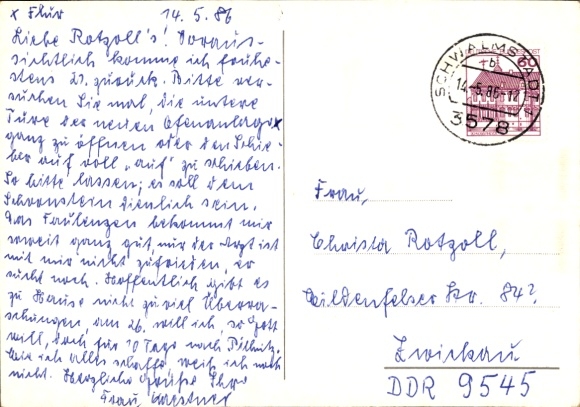 x Flur 14.5.86
Liebe Rotzoll's! Voraus-
sichtlich komme ich frühe-
stens 21. zurück. Bitte ver-
suchen Sie mal, die untere
Türe der neuen Ofenanlage x
ganz zu öffnen oder den Schie-
ber auf voll „auf" zu schieben.
So bitte lassen; es soll dem
Schornstein dienlich sein.
Das Faulenzen bekommt mir
soweit ganz gut, nur der Arzt ist
mit mir nicht zufrieden, er
sucht noch. Hoffentlich gibt es
zu Hause nicht zu viel Überra-
schungen, am 26. will ich, so Gott
will, doch für 10 Tage nach Pillnitz.
Wie ich alles schaffe weiß ich noch
nicht. Herzliche Grüße Ihre
Frau
SCHWALMSTADT 1
b
14.-5.86-12
3578
60
Frau,
Christa Rotzoll,
Wildenfelser Str. 84?
Zwickau
DDR 9545